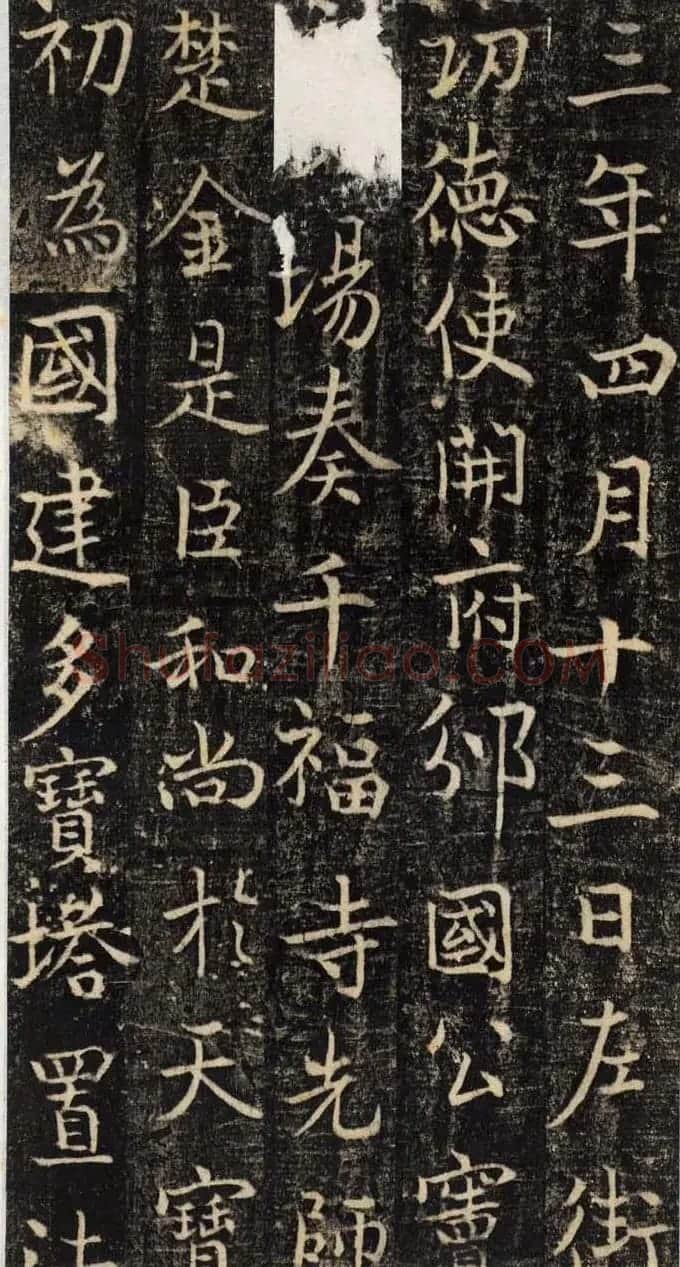 三年四月十三日左街
功德使開府邠國公竇
場奏千福寺先師
楚金是臣和尚於天寶
初為國建多寶塔置法
Shufaziliao.COM